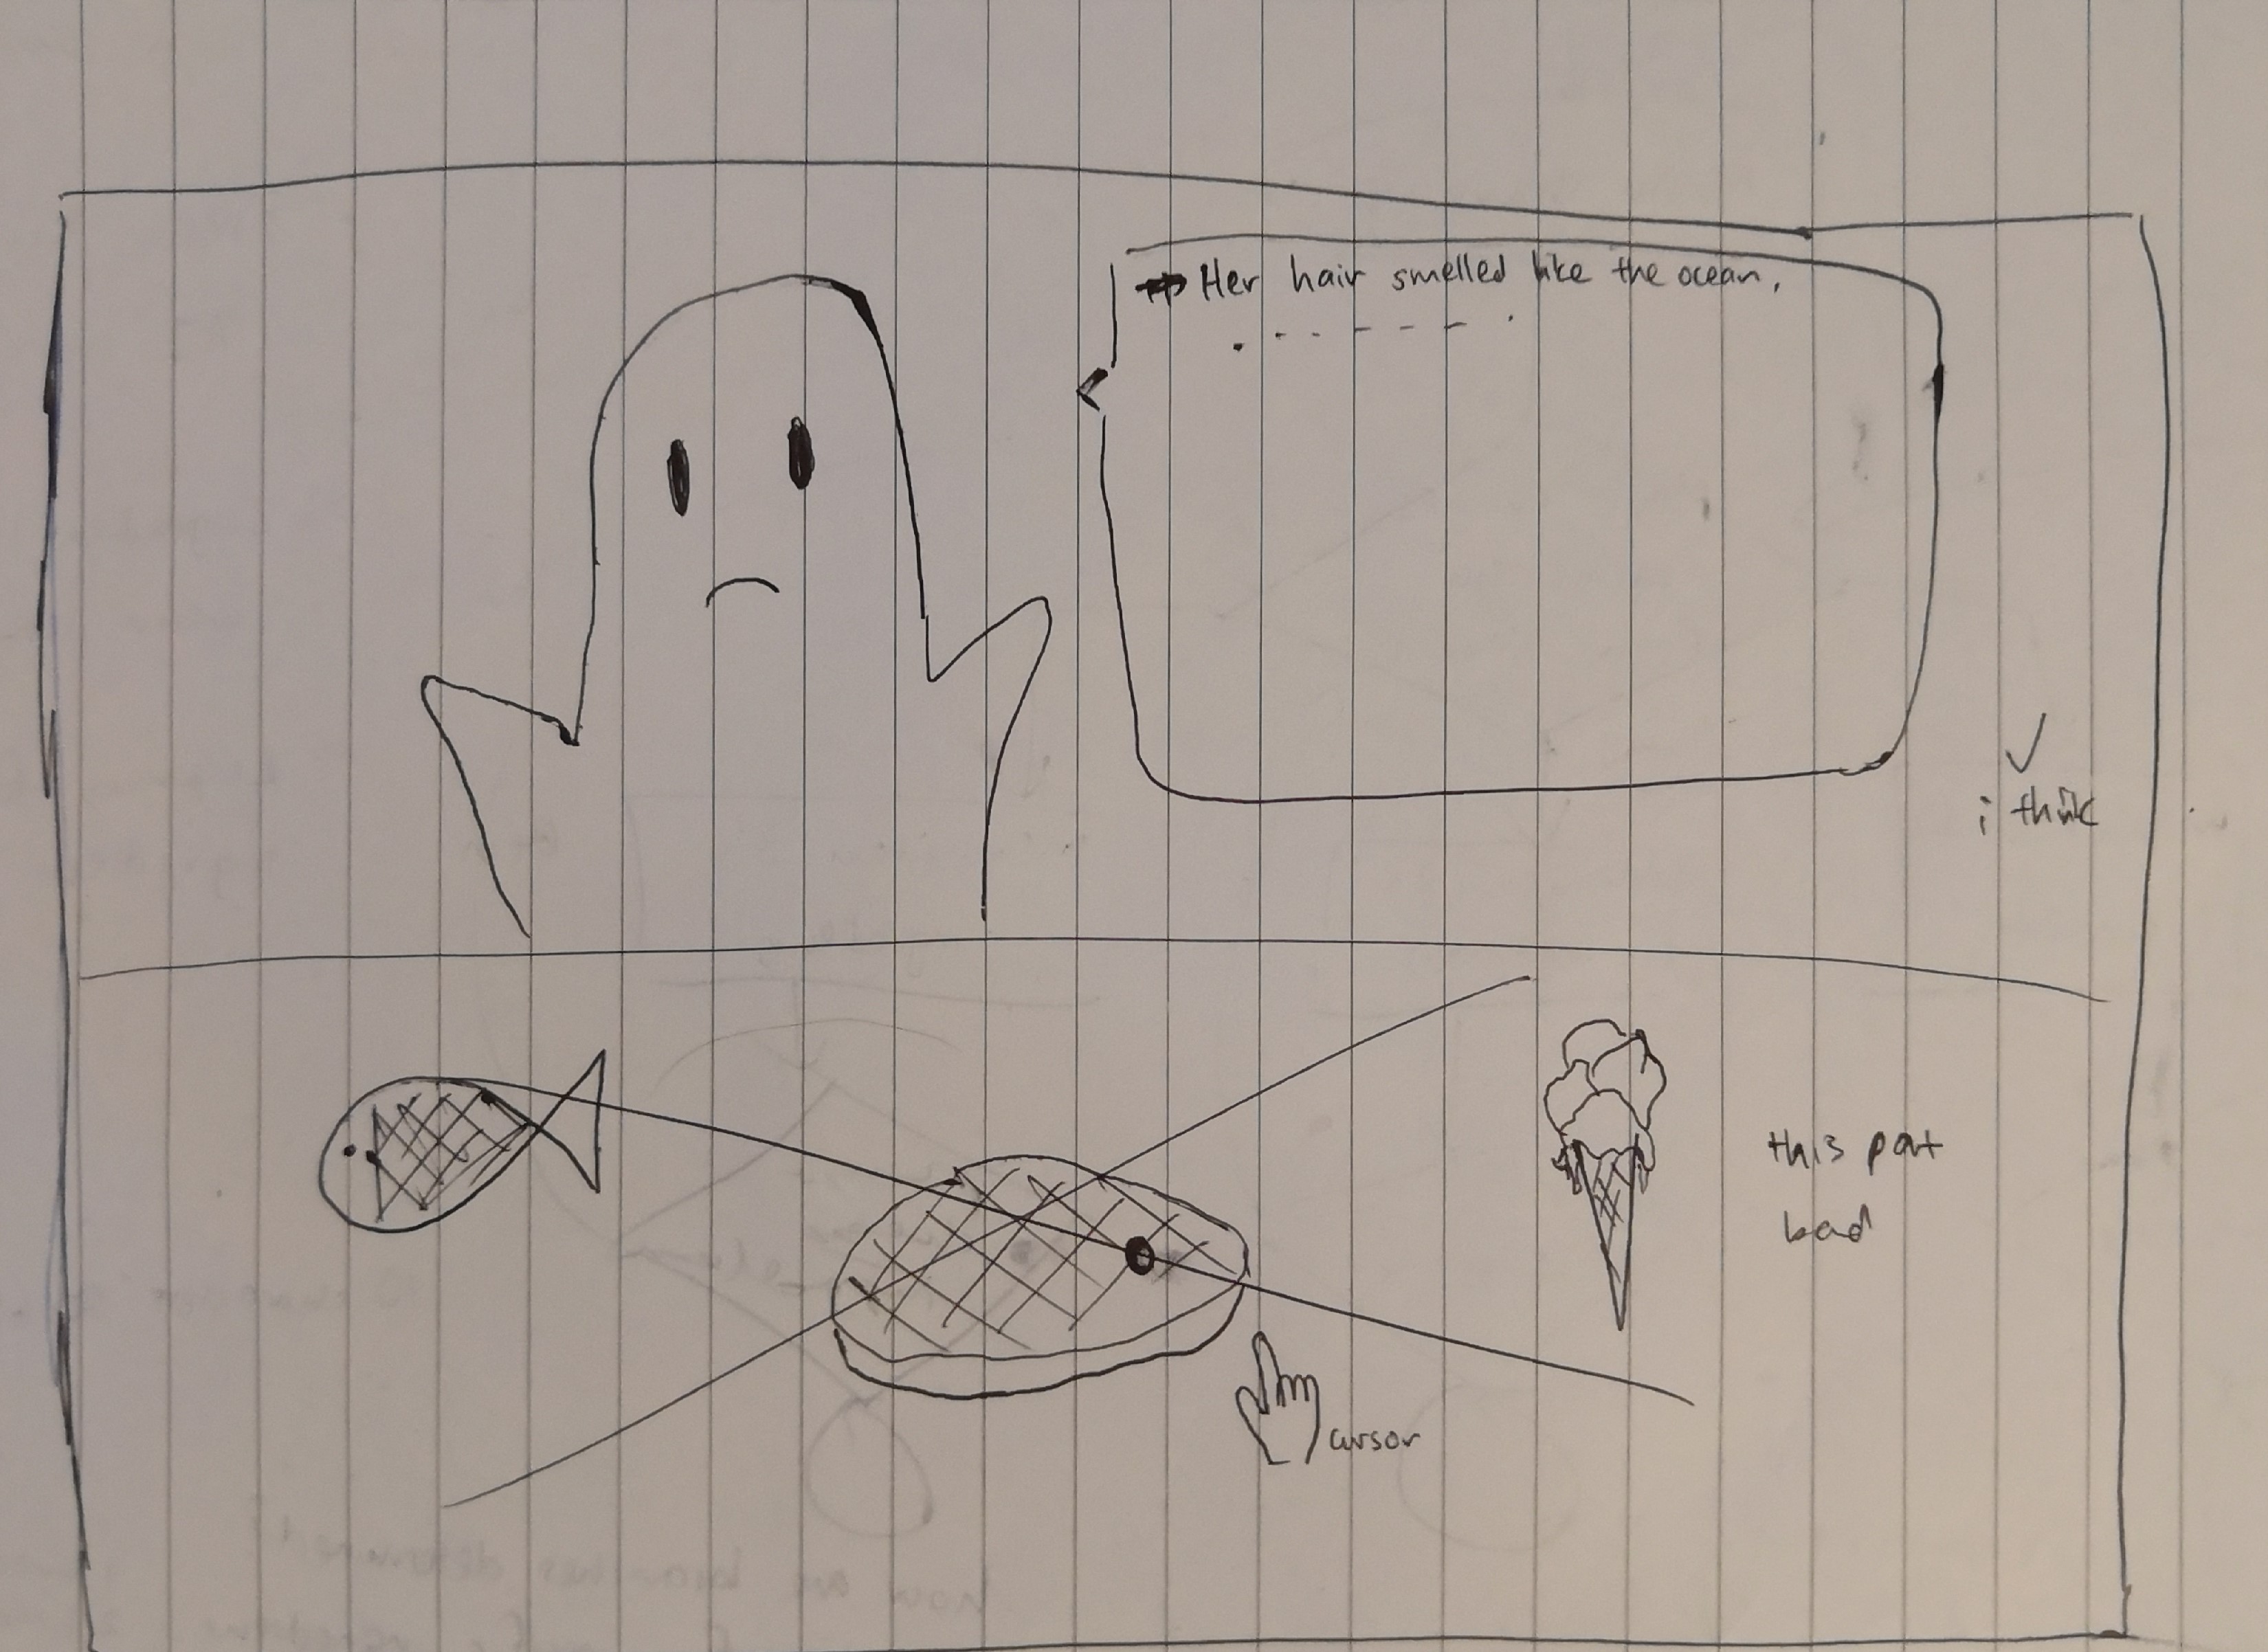 Her hair smelled like the ocean.
i think
this part
bad
cursor